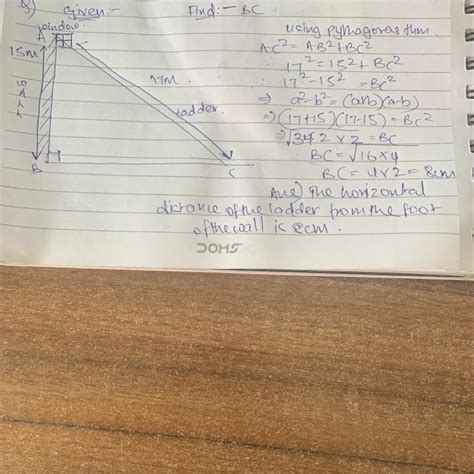 Q) Given:- Find:- BC.
window. using pythagoras thm.
A
15m
AC² = AB² + BC²
∴ 17² = 15² + BC²
∴ 17² - 15² = BC²
17M
ladder.
⇒ a² - b² = (a+b)(a-b)
⇒ (17+15)(17-15) = BC²
⇒ √32 × 2 = BC
∴ BC = √16 × 4
BC = 4 × 2 = 8cm
B
C
Ans) The horizontal
distance of the ladder from the foot
of the wall is 8cm.
DOMS